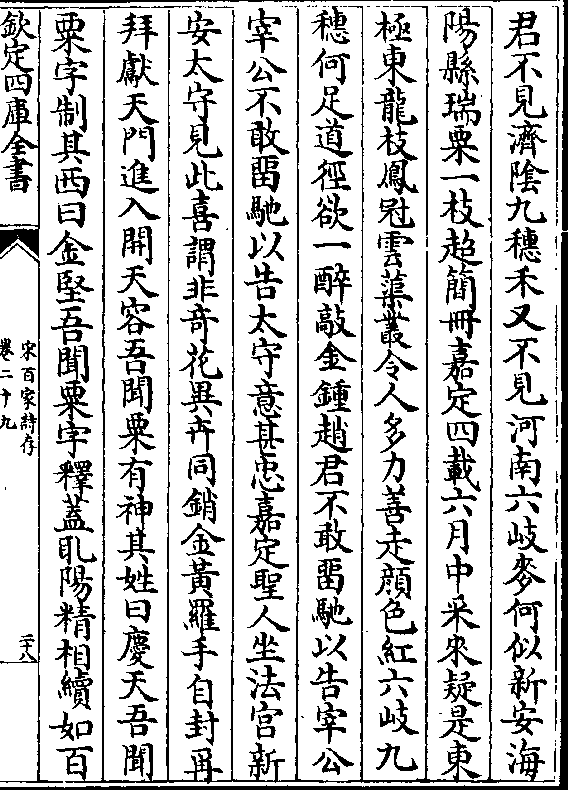 君不見濟陰九穗禾又不見河南六岐麥何似新安海
陽縣瑞粟一枝超簡冊嘉定四載六月中采來疑是東
極東龍枝鳳冠雲蕖叢令人多力善走顔色紅六岐九
穗何足道徑欲一醉敲金鍾趙君不敢畱馳以告宰公
宰公不敢畱馳以告太守意甚忠嘉定聖人坐法宫新
安太守見此喜謂非竒花異卉同銷金黃羅手自封再
拜獻天門進入開天容吾聞粟有神其姓曰慶天吾聞
粟字制其西曰金堅吾聞粟字釋蓋乩陽精相續如百
欽定四庫全書
宋百家詩存
卷二十九
二十八